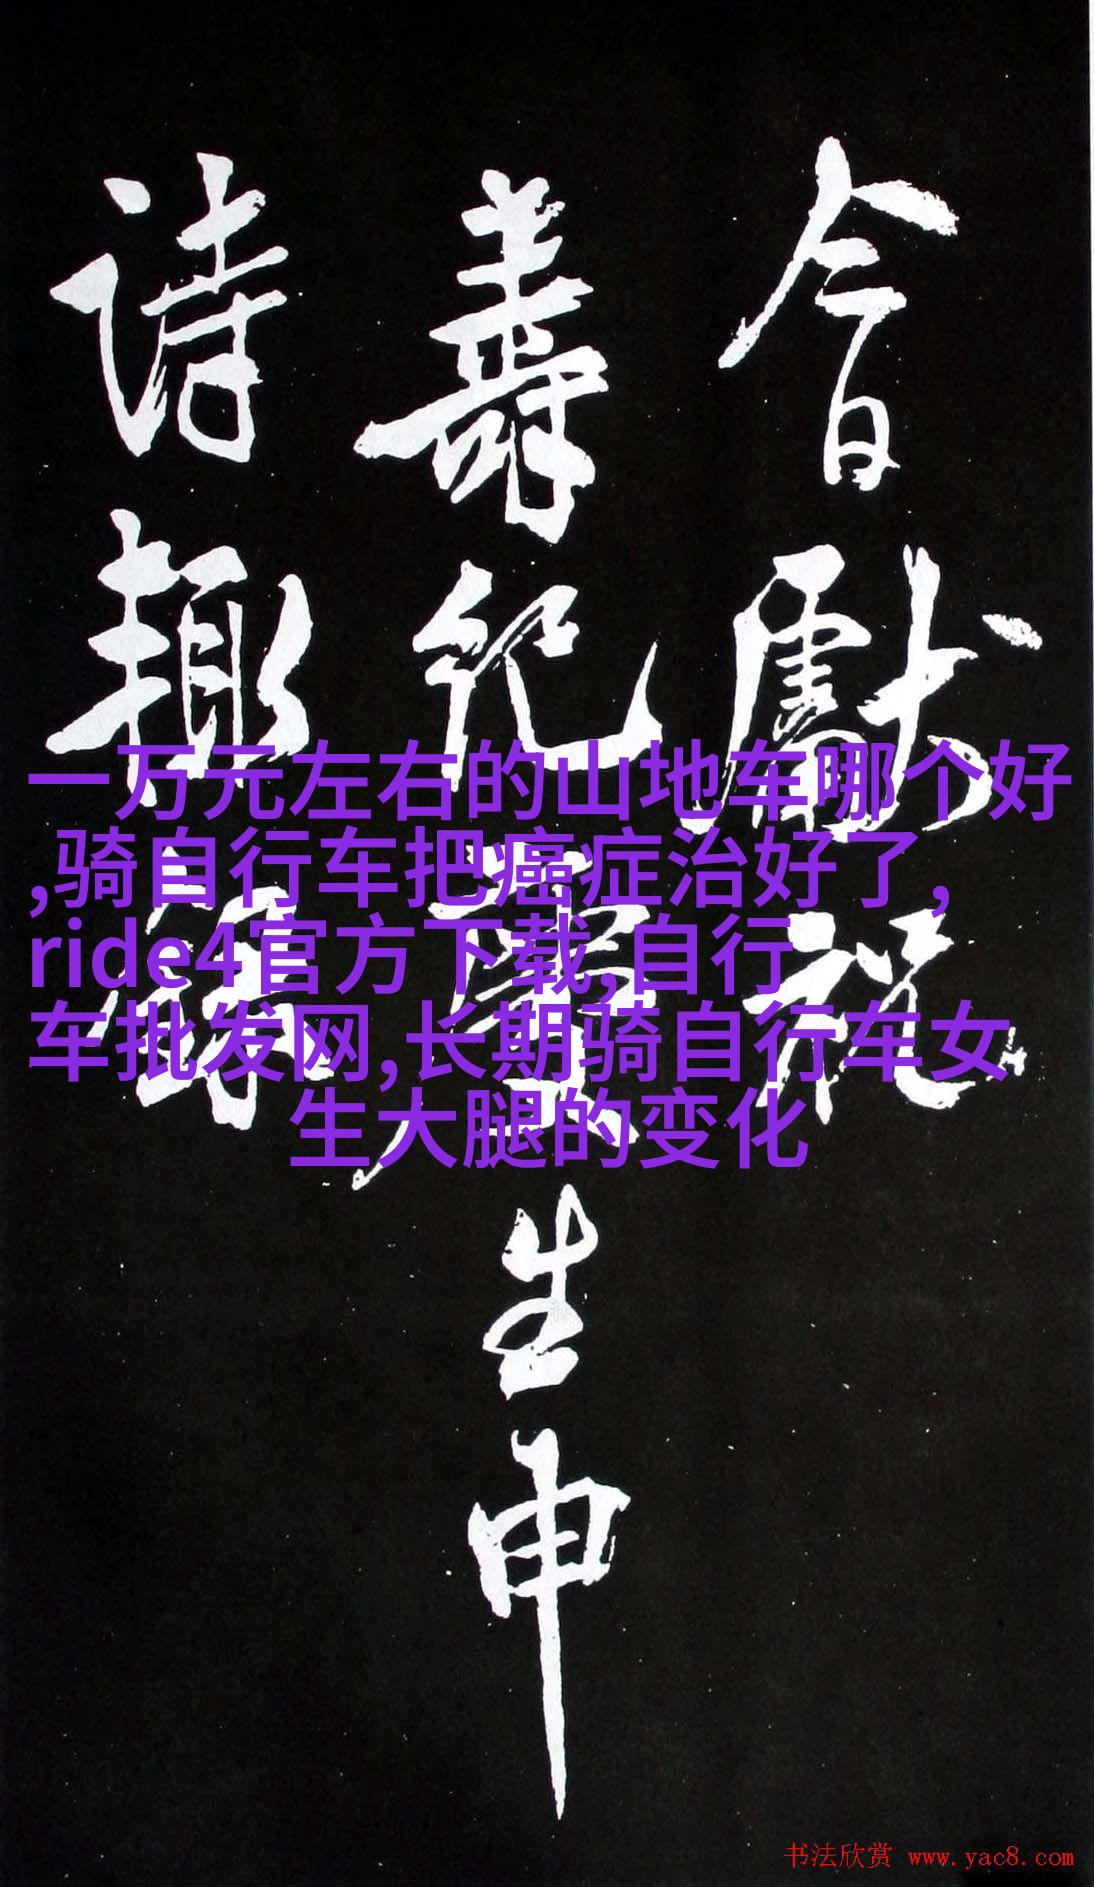 今日獻祝
壽紀生申
詩趣
一万元左右的山地车哪个好
,骑自行车把癌症治好了,
ride4官方下载,自行
车批发网,长期骑自行车女
生大腿的变化
书法欣赏 www.yac8.com